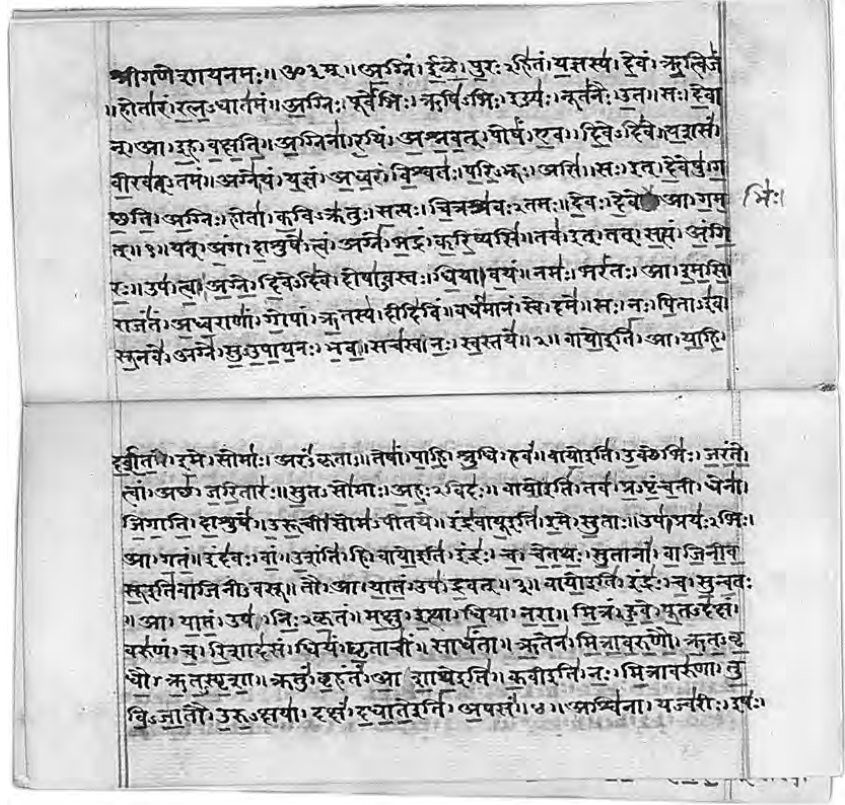 श्रीगणेशायनमः॥ॐ३म्॥अ॒ग्निं। ई॒ळे॒। पु॒रःऽहि॑तं। य॒ज्ञस्य॑। दे॒वं। ऋ॒त्विजं॑
॥होता॑रं। र॒त्न॒ऽधात॑मं॥अ॒ग्निः। पूर्वे॑भिः। ऋषि॑ऽभिः। ईड्यः॑। नूत॑नैः। उ॒त॥सः। दे॒वा
न्। आ। इ॒ह। व॒क्ष॒ति॒॥अ॒ग्निना॑। र॒यिं। अ॒श्न॒व॒त्। पोषं॑। ए॒व। दि॒वेऽदि॑वे। य॒शसं॑
वी॒रव॑त्ऽतमं॥अग्ने॑। यं। य॒ज्ञं। अ॒ध्व॒रं। वि॒श्वतः॑। प॒रि॒ऽभूः। असि॑॥सः। इत्। दे॒वेषु॑। ग॒
च्छ॒ति॒। अ॒ग्निः। होता॑। क॒विऽक्र॑तुः। स॒त्यः। चि॒त्रश्र॑वःऽतमः॥दे॒वः। दे॒वे आ। ग॒म॒ भिः॑।
त्॥१॥यत्। अं॒ग। दा॒शुषे॑। त्वं। अग्ने॑। भ॒द्रं। क॒रि॒ष्यसि॑॥तव॑। इत्। तत्। स॒त्यं। अं॒गि॒
रः॒॥उप॑। त्वा॒। अ॒ग्ने॒। दि॒वेऽदि॑वे। दोषा॑ऽवस्तः। धि॒या। व॒यं॥नमः॑। भरं॑तः। आ। इ॒म॒सि॒
राजं॑तं। अ॒ध्व॒राणां॑। गो॒पां। ऋ॒तस्य॑। दीदि॑विं॥वर्ध॑मानं। स्वे। दमे॑॥सः। नः॒। पि॒ताऽइ॑व।
सू॒नवे॑। अग्ने॑। सु॒ऽउ॒पा॒य॒नः। भ॒व॒॥सच॑स्व। नः॒। स्व॒स्तये॑॥२॥वायो॒इति॑। आ। या॒हि॒।
द॒र्श॒त॒। इ॒मे। सोमाः॑। अरं॑ऽकृताः॥तेषां॑। पा॒हि॒। श्रु॒धि। हवं॑॥वायो॒इति॑। उ॒क्थेभिः॑। ज॒रं॒ते॒
त्वां। अच्छ॑। ज॒रि॒तारः॑॥सु॒तऽसो॑माः। अ॒हः॒ऽविदः॑॥वायो॒इति॑। तव॑। प्र॒ऽपृं॒च॒ती। धेना॑।
जि॒गा॒ति॒। दा॒शुषे॑॥उ॒रू॒ची। सोम॑ऽपीतये॥इंद्र॑वायू॒इति॑। इ॒मे। सु॒ताः॥उप॑। प्रयः॑ऽभिः।
आ। ग॒तं॒॥इंद॑वः। वां॒। उ॒शंति॑। हि॥वायो॒इति॑। इंद्रः॑। च॒। चे॒त॒थः॒। सु॒तानां॑। वा॒जि॒नी॒व॒
सू॒इति॑वाजिनीऽवसू॥तौ। आ। या॒तं॒। उप॑। द्र॒वत्॥३॥वायो॒इति॑। इंद्रः॑। च॒। सु॒न्व॒तः
॥आ। या॒तं॒। उप॑। निः॒ऽकृ॒तं॥म॒क्षु। इ॒त्था। धि॒या। न॒रा॒॥मि॒त्रं। हु॒वे॒। पू॒तऽद॑क्षं।
वरु॑णं। च॒। रि॒शाद॑सं॥धियं॑। घृ॒ताचीं॑। साधं॑ता॥ऋ॒तेन॑। मि॒त्रा॒व॒रु॒णौ॒। ऋ॒त॒ऽवृ॒
धौ॒। ऋ॒त॒ऽस्पृ॒शा॒॥क्रतुं॑। बृ॒हंतं॑। आ॒शा॒थे॒इति॑॥क॒वीइति॑। नः॒। मि॒त्रावरु॑णा। तु॒
वि॒ऽजा॒तौ। उ॒रु॒ऽक्षया॑। दक्षं॑। द॒धा॒ते॒इति॑। अ॒पसं॑॥४॥अश्वि॑ना। यज्व॑रीः। इषः॑।